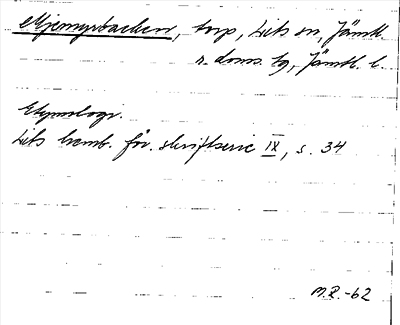 Mjemyrbacken, torp, Lits sn, Jämtl.
n. doms. tg, Jämtl. l.
Etymologi.
Lits hemb. för. skriftserie IX, s. 34
M.R.-62